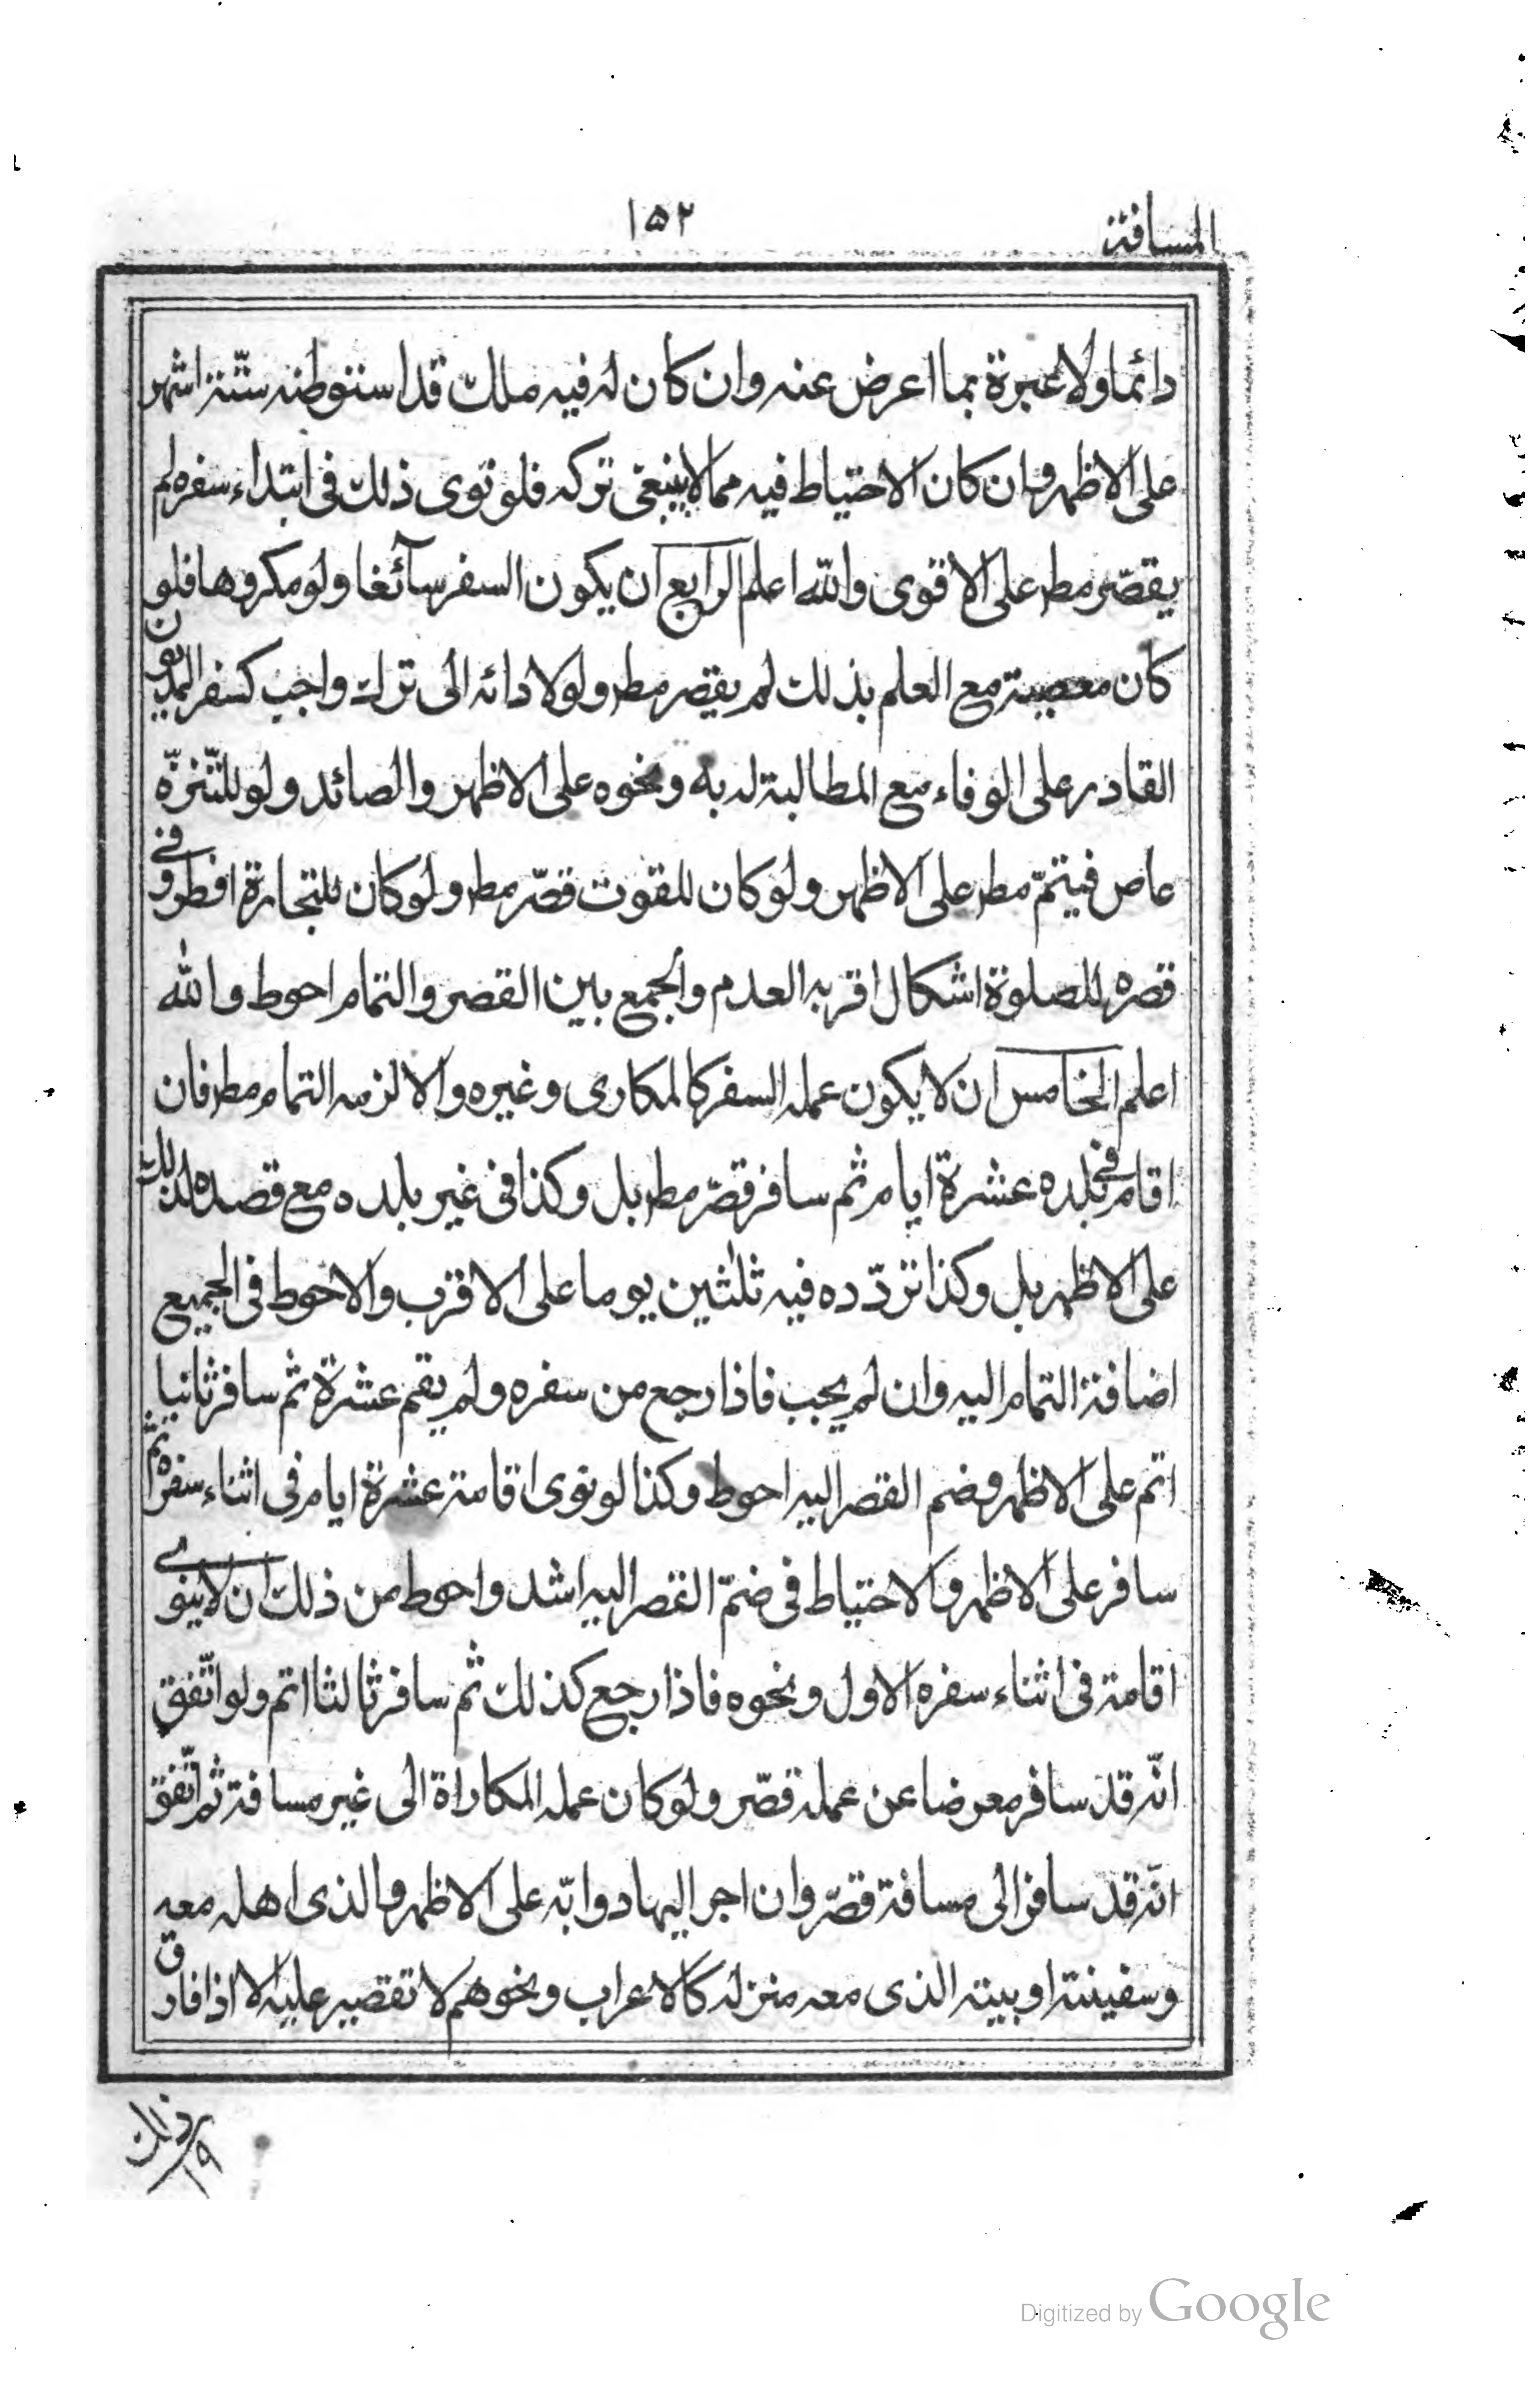 المسافة
١٥٢
دائما ولا عبرة بما اعرض عنه وان كان له فيه ملك قد استوطنه ستّة اشهر
على الاظهر وان كان الاحتياط فيه مما لا ينبغى تركه فلو نوى ذلك فى ابتداء سفره لم
يقصّر مط على الاقوى والله اعلم الرابع ان يكون السفر سآئغا ولو مكروها فلو
كان معصية مع العلم بذلك لم يقصر مط ولو لادائه الى ترك واجب كسفر المديون
القادر على الوفاء مع المطالبة له به ونحوه على الاظهر والصائد ولو للتّنزّه
عاص فيتمّ مط على الاظهر ولو كان للقوت قصّر مط ولو كان للتجارة افطر وفى
قصره للصلوة اشكال اقربه العدم والجمع بين القصر والتمام احوط والله
اعلم الخامس ان لا يكون عمله السفر كالمكارى وغيره والا لزمه التمام مط فان
اقام فى بلده عشرة ايام ثم سافر قصّر مط بل وكذا فى غير بلده مع قصده لذلك
على الاظهر بل وكذا تردّده فيه ثلثين يوما على الاقرب والاحوط فى الجميع
اضافة التمام اليه وان لم يجب فاذا رجع من سفره ولم يقم عشرة ثم سافر ثانيا
اتم على الاظهر وضم القصر اليه احوط وكذا لو نوى اقامة عشرة ايام فى اثناء سفره ثم
سافر على الاظهر والاحتياط فى ضمّ القصر اليه اشد واحوط من ذلك ان لا ينوى
اقامة فى اثناء سفره الاول ونحوه فاذا رجع كذلك ثم سافر ثالثا اتم ولو اتّفق
انّه قد سافر معرضا عن عمله قصّر ولو كان عمله المكاراة الى غير مسافة ثم اتّفق
انّه قد سافر الى مسافة قصّر وان اجر اليها دوابّه على الاظهر والذى اهله معه
وسفينته او بيته الذى معه منزله كالاعراب ونحوهم لا تقصير عليه الا اذا فارق
Digitized by Google